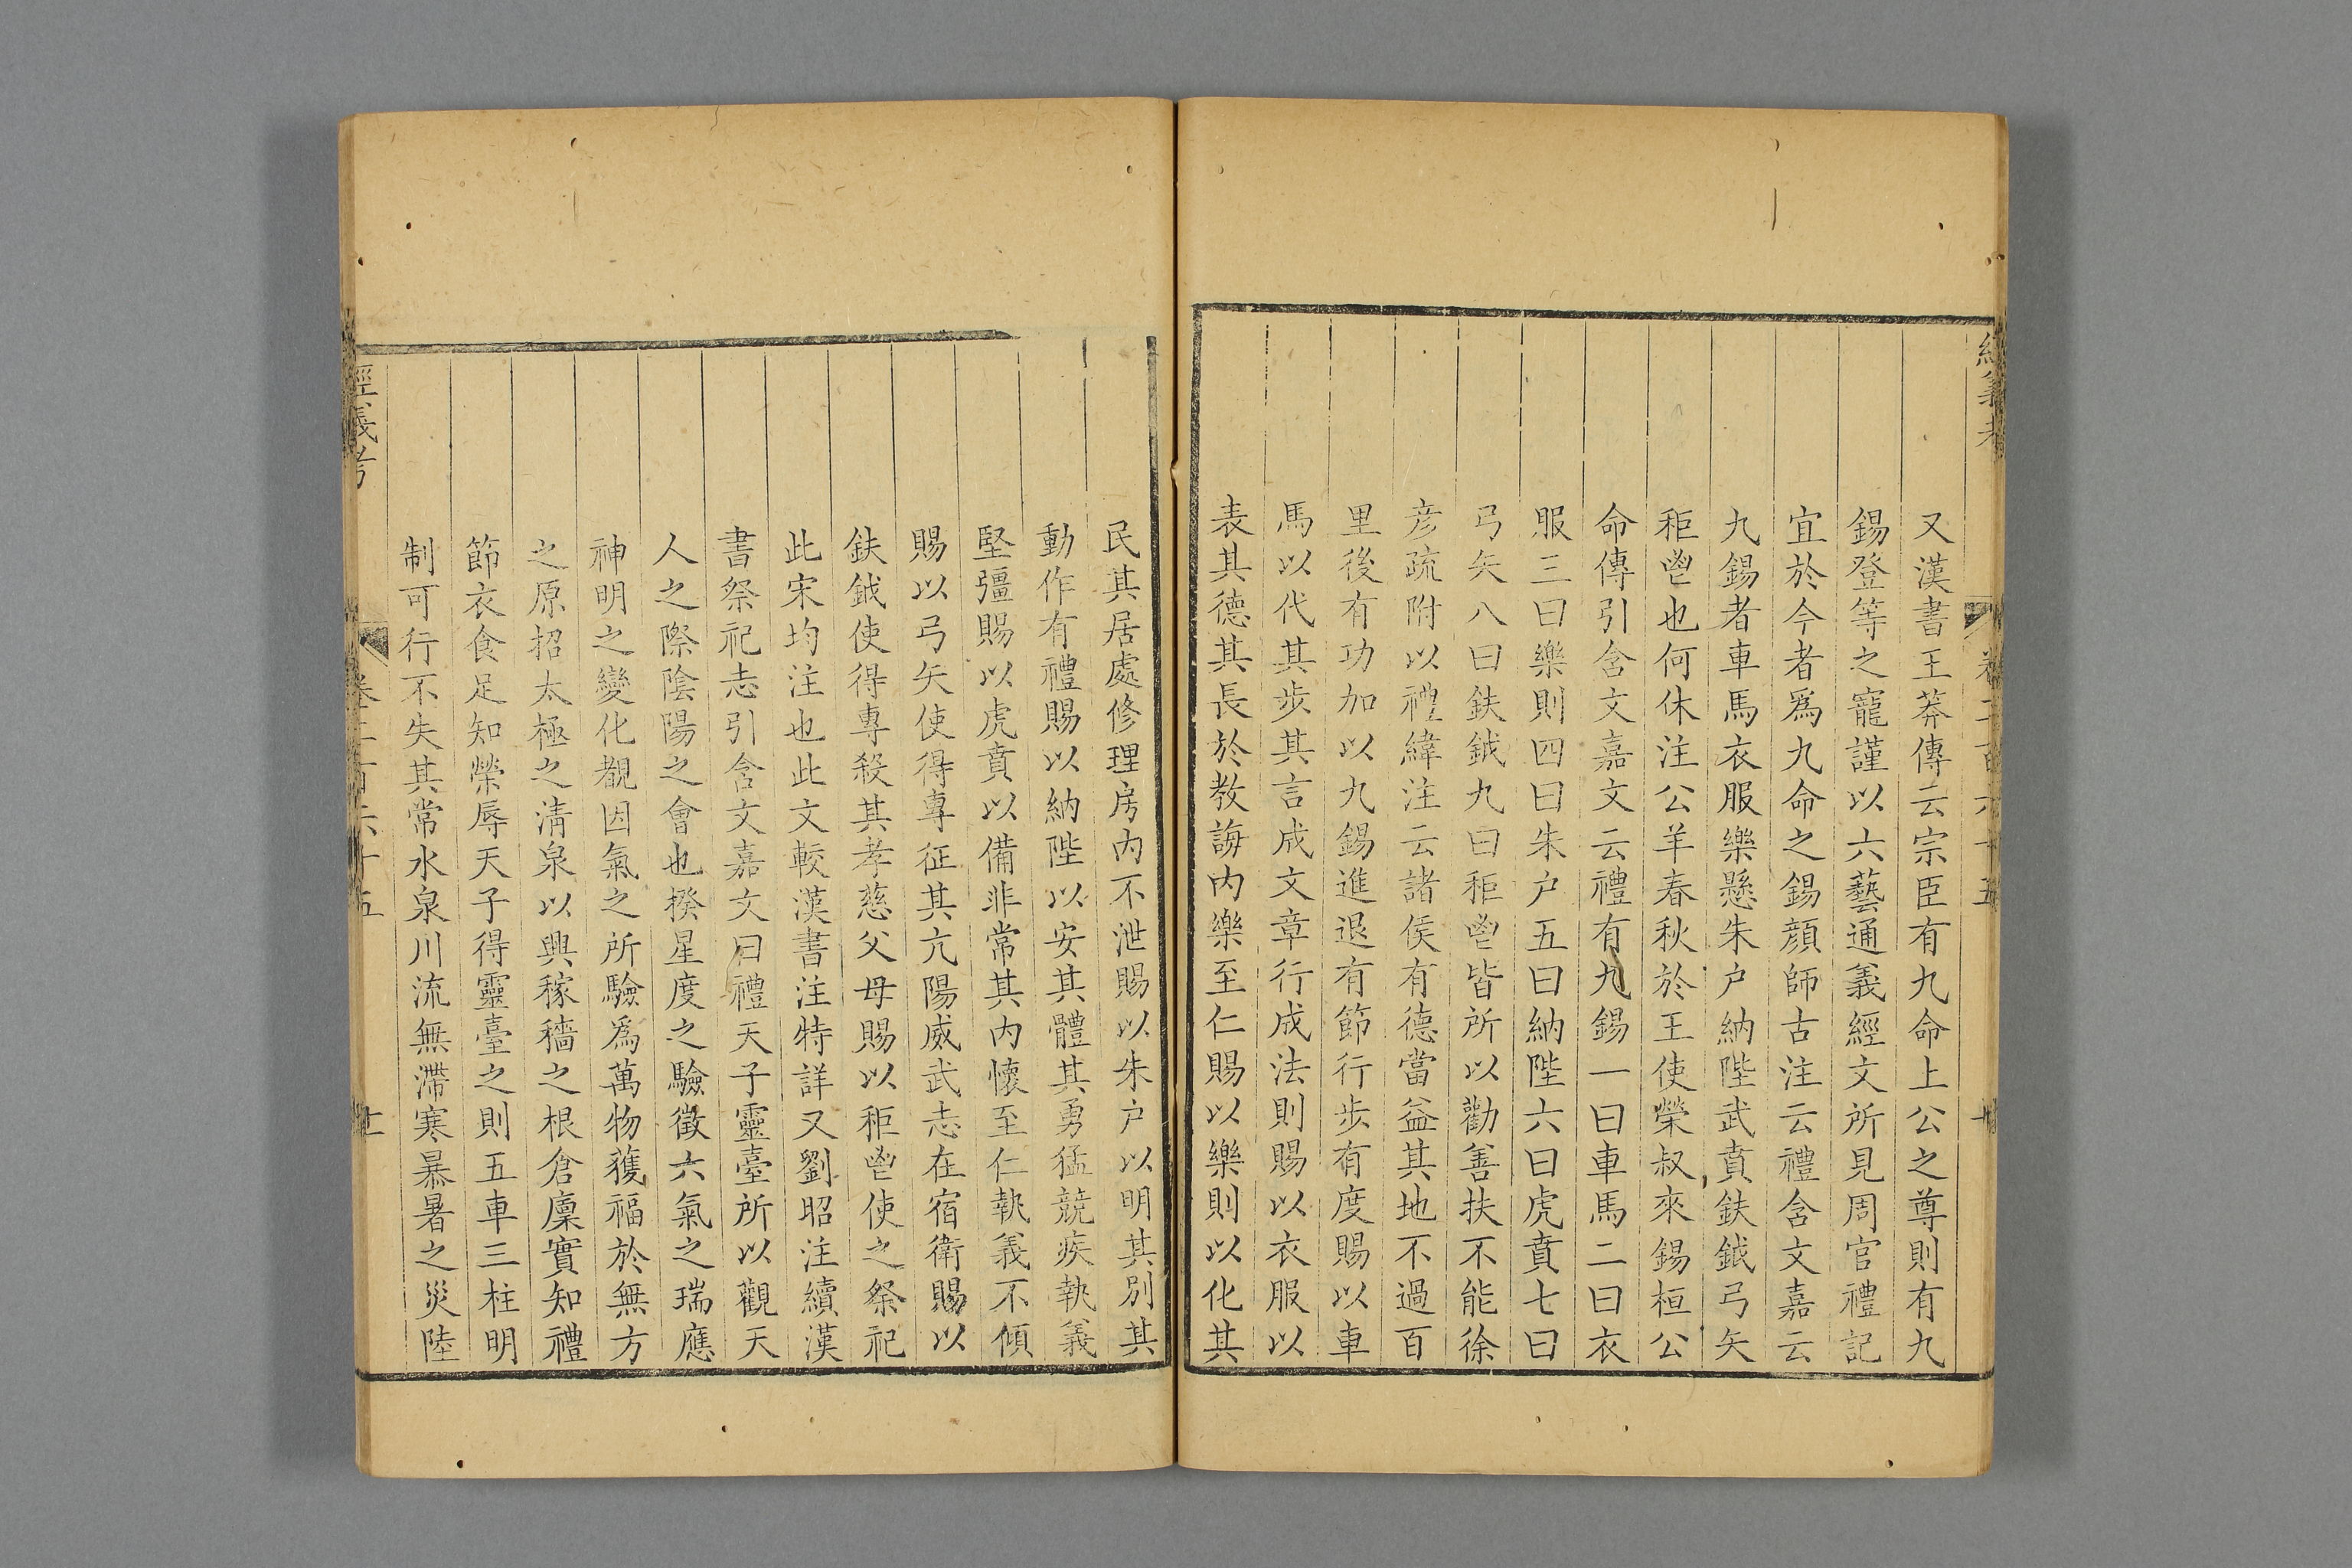 經義考 卷二百六十五
又漢書王莽傳云宗臣有九命上公之尊則有九
錫登等之寵謹以六藝通義經文所見周官禮記
宜於今者爲九命之錫顔師古注云禮含文嘉云
九錫者車馬衣服樂懸朱户納陛武賁鈇鉞弓矢
秬鬯也何休注公羊春秋於王使榮叔來錫桓公
命傳引含文嘉文云禮有九錫一曰車馬二曰衣
服三曰樂則四曰朱户五曰納陛六曰虎賁七曰
弓矢八曰鈇鉞九曰秬鬯皆所以勸善扶不能徐
彦疏附以禮緯注云諸侯有德當益其地不過百
里後有功加以九錫進退有節行步有度賜以車
馬以代其步其言成文章行成法則賜以衣服以
表其德其長於教誨内樂至仁賜以樂則以化其
民其居處修理房内不泄賜以朱户以明其别其
動作有禮賜以納陛以安其體其勇猛競疾執義
堅彊賜以虎賁以備非常其内懷至仁執義不傾
賜以弓矢使得專征其亢陽威武志在宿衛賜以
鈇鉞使得專殺其孝慈父母賜以秬鬯使之祭祀
此宋均注也此文較漢書注特詳又劉昭注續漢
書祭祀志引含文嘉文曰禮天子靈臺所以觀天
人之際陰陽之會也揆星度之驗徵六氣之瑞應
神明之變化覩因氣之所驗爲萬物獲福於無方
之原招太極之淸泉以興稼穡之根倉廩實知禮
節衣食足知榮辱天子得靈臺之則五車三柱明
制可行不失其常水泉川流無滯寒暴暑之災陸
經義考 卷二百六十五 十一